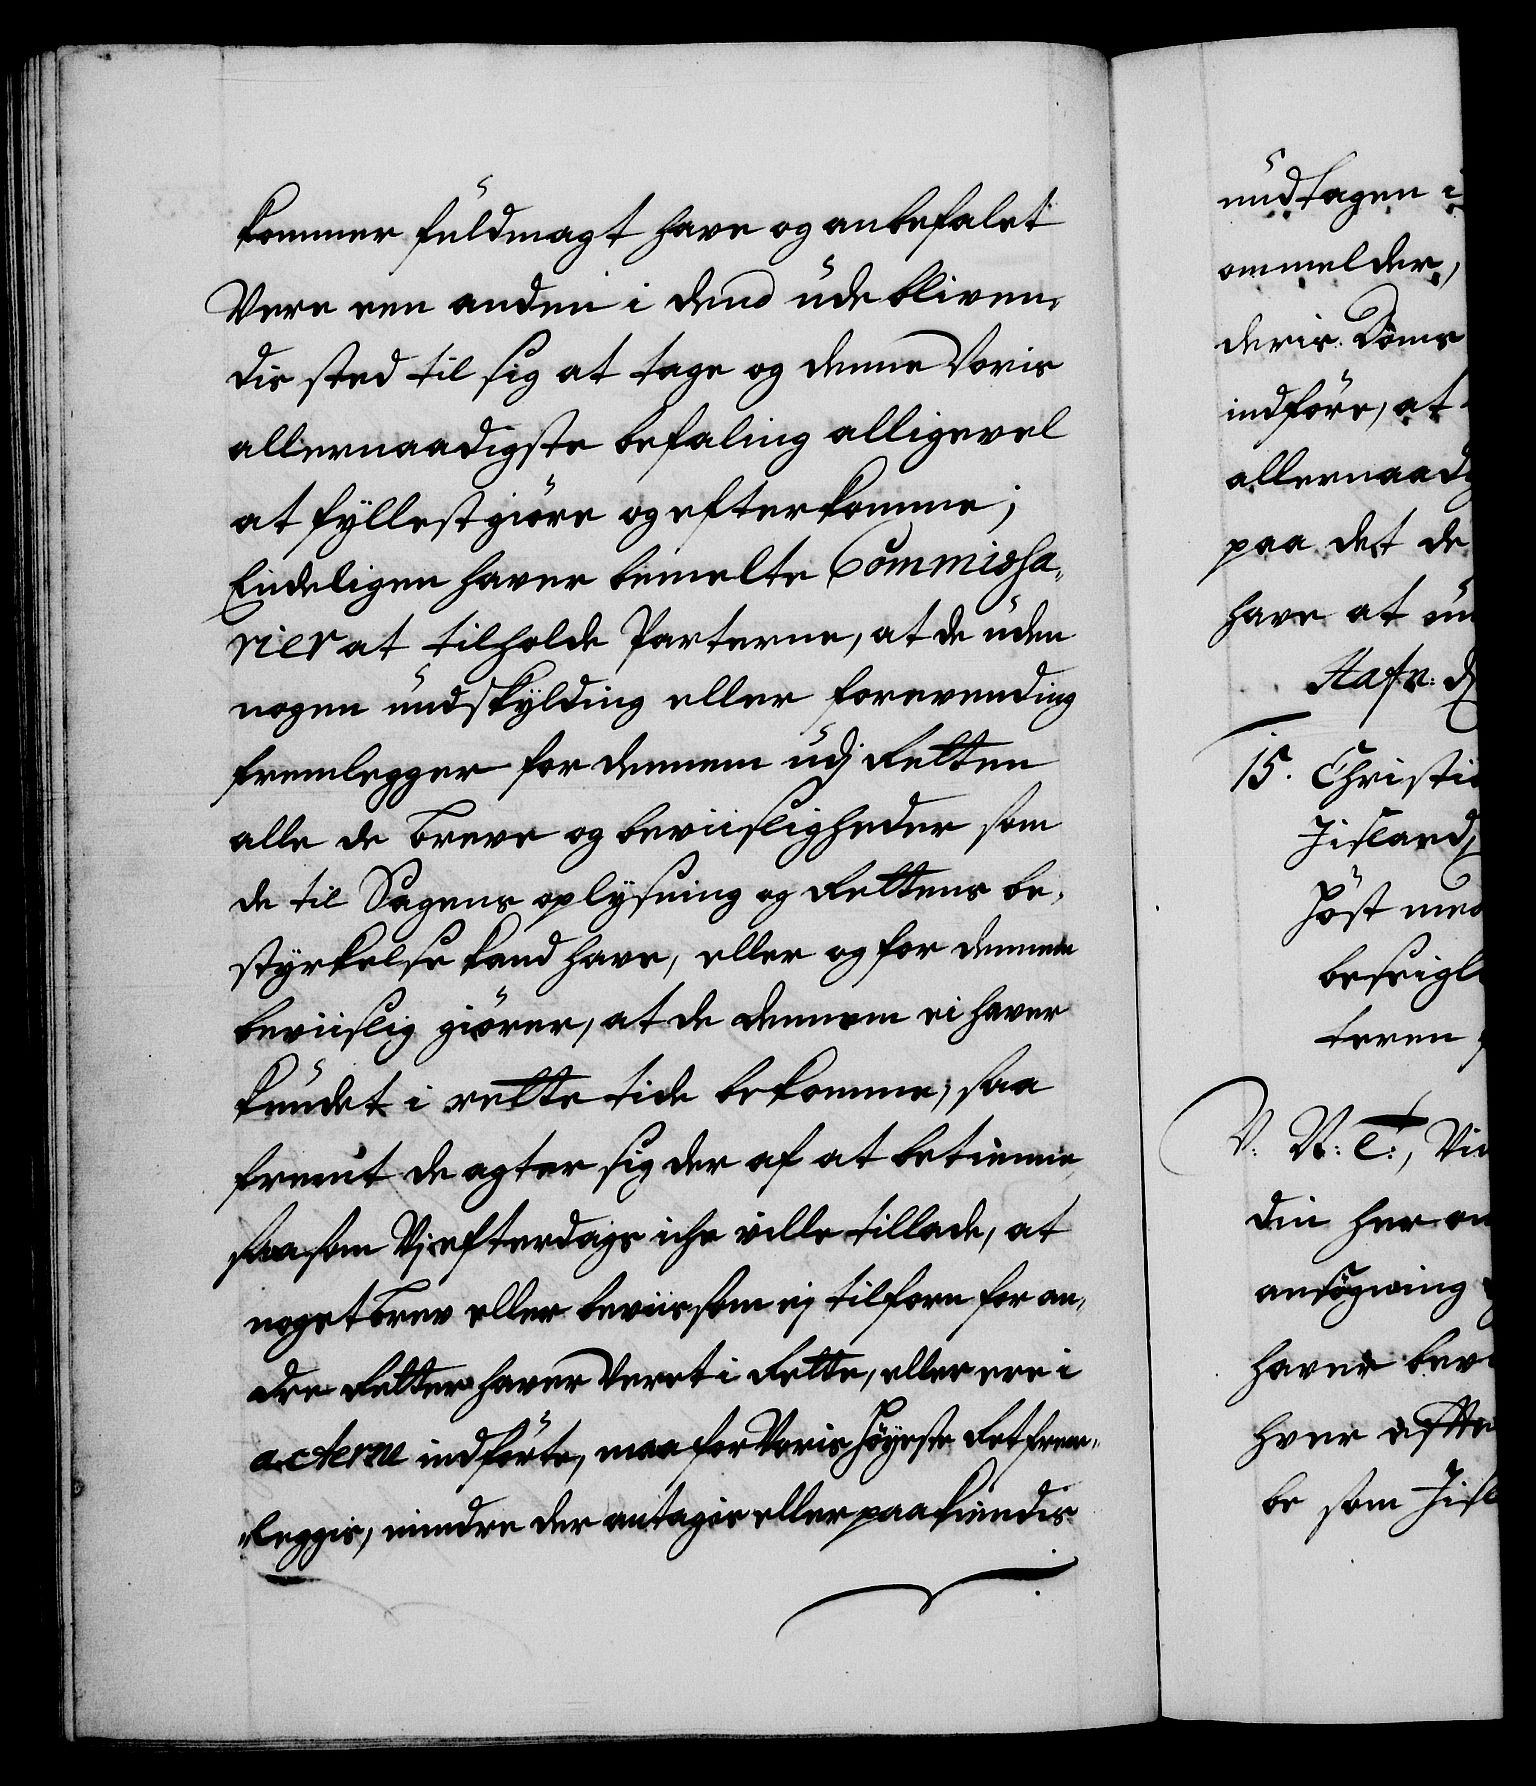 kommer fuldmagt have og anbefalet
Vere een anden i dend udebliven,
dis sted til sig at tage og denne Voris
allernaadigste befaling alligevel
at fyllestgiöre og efterkomme;
Endeligen haver bemelte Commissa,
rier at tilholde Parterne, at de uden
nogen undskylding eller forevending
fremlegger for dennem udj Retten
alle de breve og beviisligheder som
de til Sagens oplysning og Rettens be,
styrkelse kand have, eller og for dennem
beviislig giörer, at de dennem ei haver
kundet i rette tide bekomme, saa
fremt de agter sig der af at betienne,
saasom Vj efterdags iche ville tillade, at
noget brev eller beviis som ej tilforn for an,
dre Retter haver Veret i Rette, eller ere i
acterne indförte, maa for Voris Höyeste Ret frem,
leggis, mindre der antagis eller paakiendis
undtagen i
ommelder,
deris Döms
indföre, at
allernaad
paa det de
have at un
Hafn: d
15. Christi
Jisland,
Höst med
beseigl
teren
V: N: C:, Vid
din her on
ansögning
haver bev
hver efftter
be som Jisl